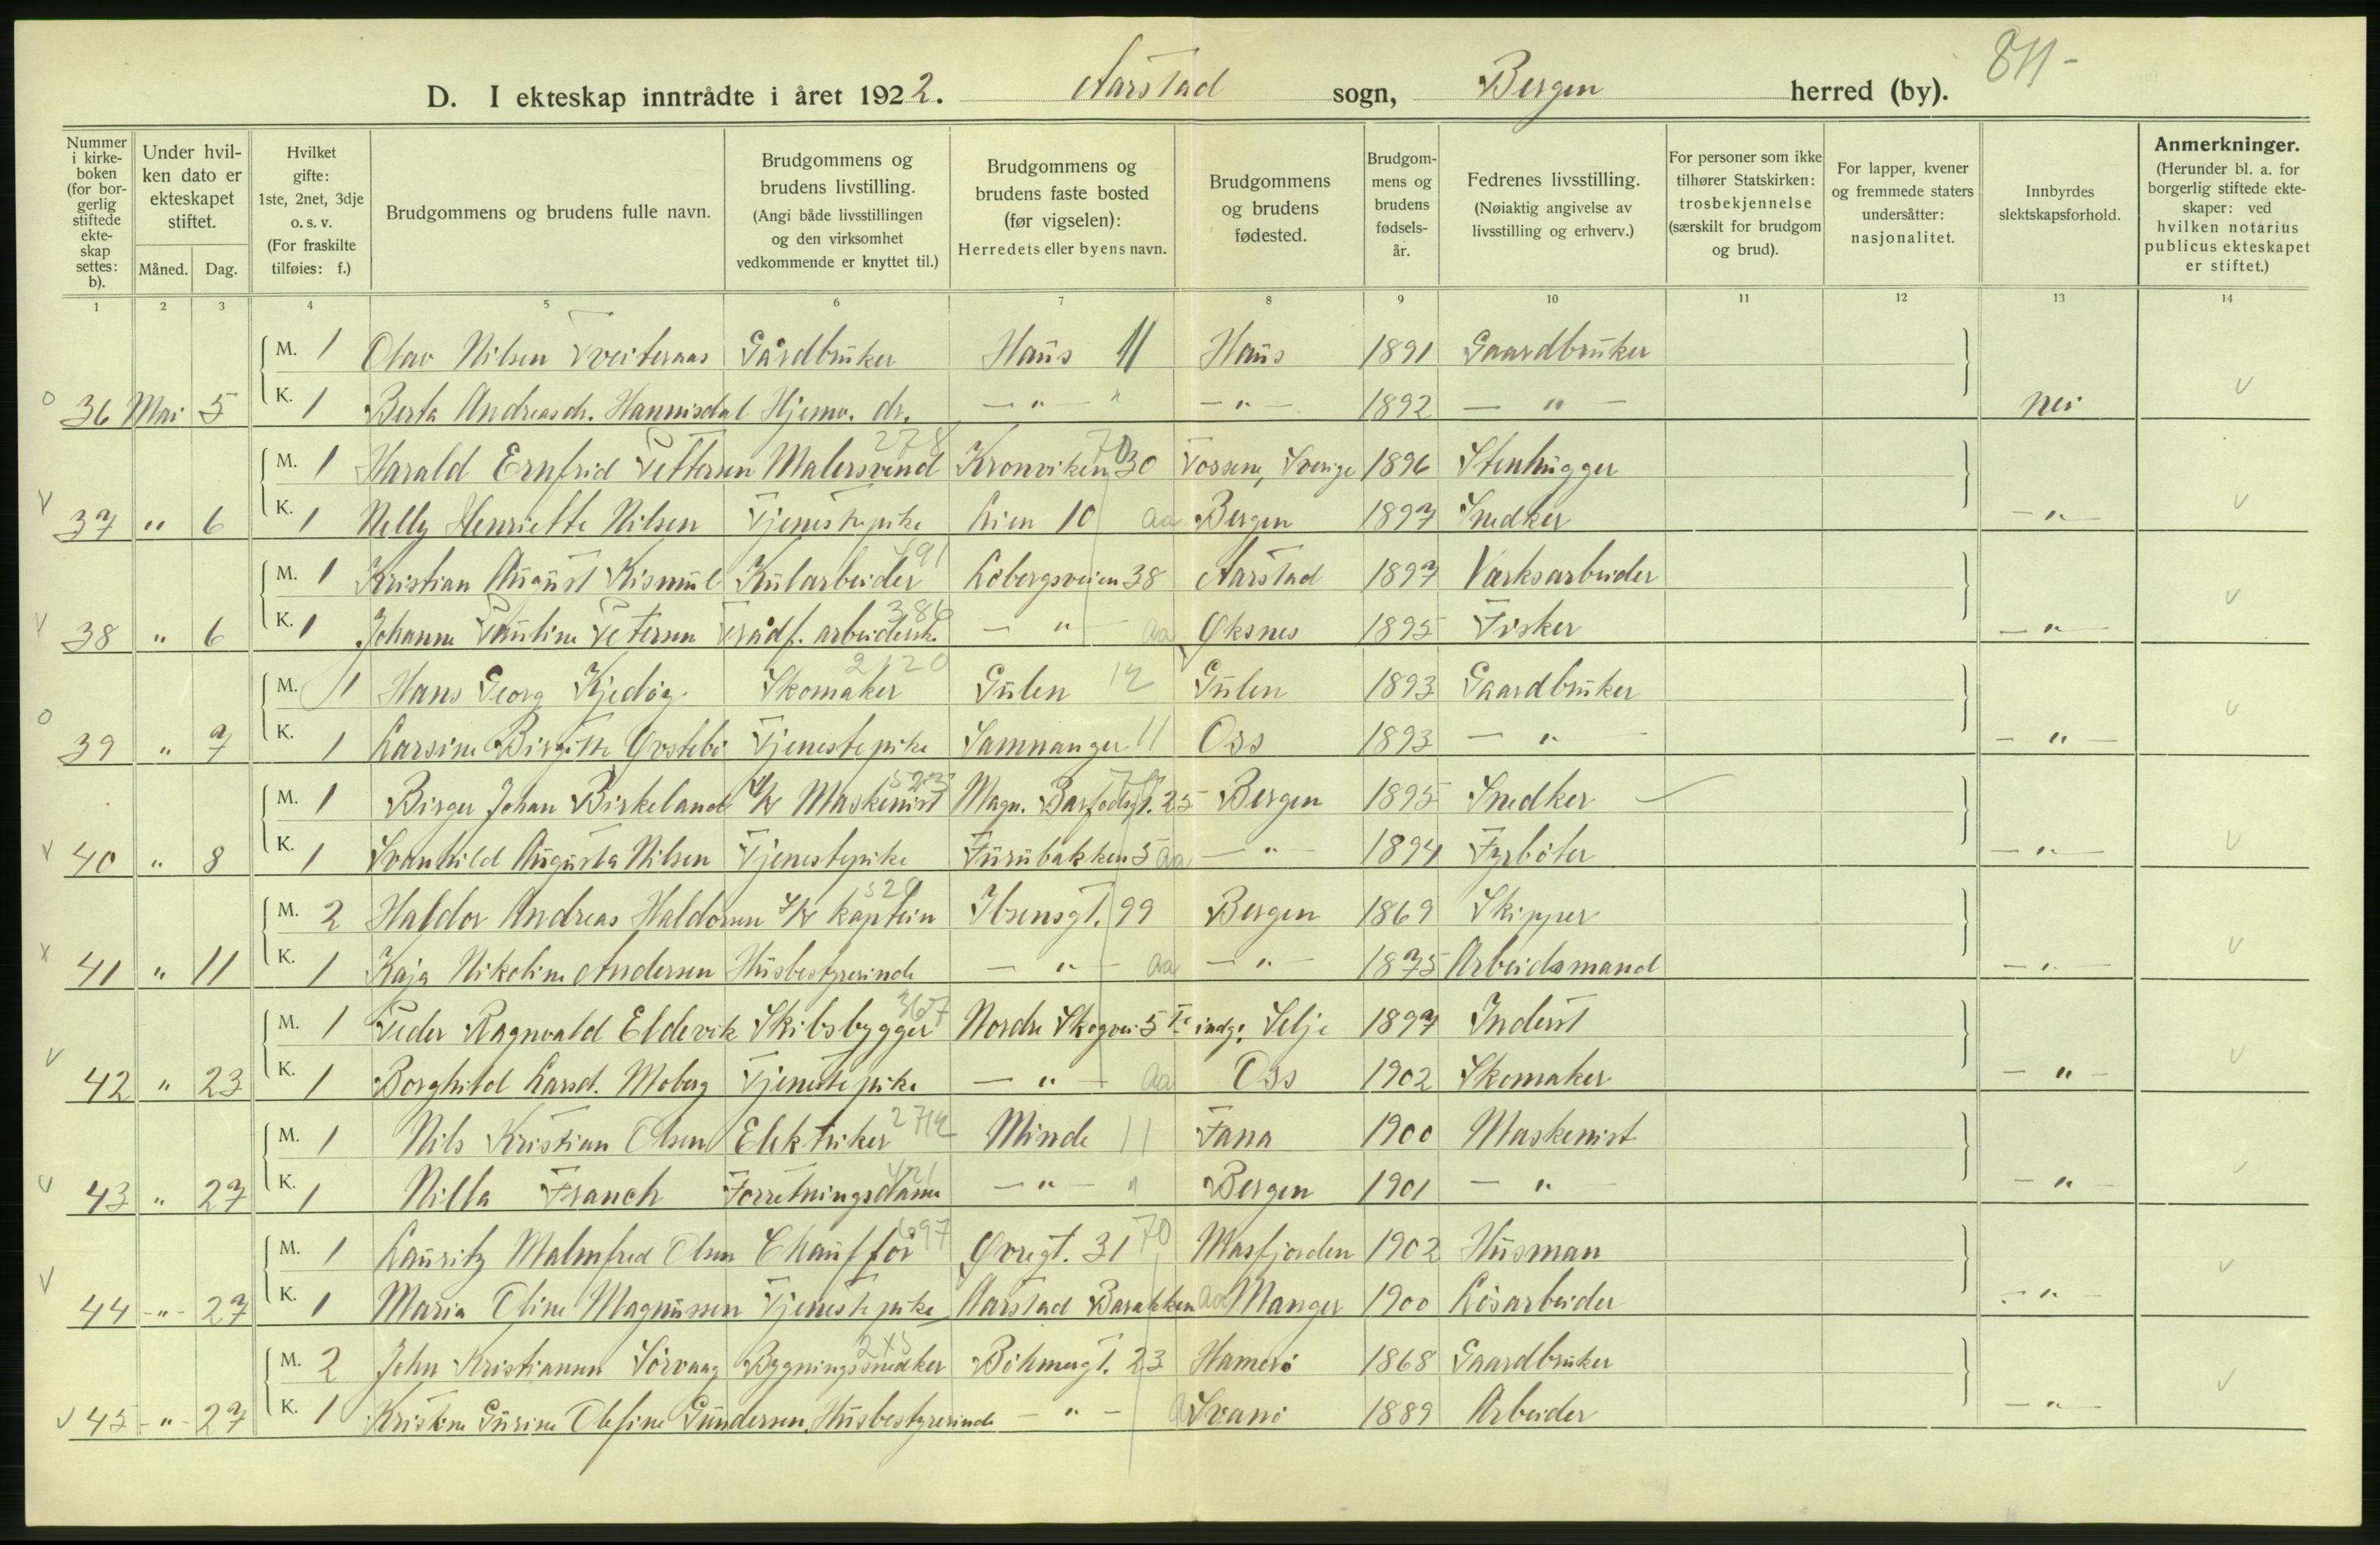 811-
D. I ekteskap inntrådte i året 1922. Aarstad sogn, Bergen herred (by).
Nummer i kirkeboken (for borgerlig stiftede ekteskap settes: b).
Under hvilken dato er ekteskapet stiftet.
Måned. Dag.
Hvilket gifte: 1ste, 2net, 3dje o. s. v. (For fraskilte tilføies: f.)
Brudgommens og brudens fulle navn.
Brudgommens og brudens livstilling. (Angi både livsstillingen og den virksomhet vedkommende er knyttet til.)
Brudgommens og brudens faste bosted (før vigselen): Herredets eller byens navn.
Brudgommens og brudens fødested.
Brudgommens og brudens fødselsår.
Fedrenes livsstilling. (Nøiaktig angivelse av livsstilling og erhverv.)
For personer som ikke tilhører Statskirken: trosbekjennelse (særskilt for brudgom og brud).
For lapper, kvener og fremmede staters undersåtter: nasjonalitet.
Innbyrdes slektskapsforhold.
Anmerkninger. (Herunder bl. a. for borgerlig stiftede ekteskaper: ved hvilken notarius publicus ekteskapet er stiftet.)
1 2 3 4 5 6 7 8 9 10 11 12 13 14
M. 1 Olav Nilsen Tveiteraas Gårdbruker Haus 11 Haus 1891 Gaardbruker
36 Mai 5 K. 1 Berta Andreasdr. Hannisdal Hjemv. dr. - " - " - " - 1892 - " - Nei
M. 1 Harald Ernfrid Pettersen Malersvend 278 Kronviken 30 70 Tossene, Sverige 1896 Stenhugger
37 " 6 K. 1 Nelly Henriette Nilsen Tjenestepike Lien 10 Aa Bergen 1897 Snedker - " -
M. 1 Kristian August Kismul Kularbeider 491 Løbergsveien 38 Aarstad 1897 Værksarbeider
38 " 6 K. 1 Johanne Pauline Petersen Trådf. arbeiderske 386 - " - Aa Øksnes 1895 Fisker - " -
M. 1 Hans Georg Kjedøy Skomaker 2120 Gulen 12 Gulen 1893 Gaardbruker
39 " 7 K. 1 Larsine Birgitte Øvstebø Tjenestepike Samnanger 11 Oss 1893 - " - - " -
M. 1 Birger Johan Birkeland Maskinist 523 Magn. Barfodsgt. 25 70 Bergen 1895 Snedker
40 " 8 K. 1 Svanhild Augusta Nilsen Tjenestepike Furubakken 5 Aa - " - 1894 Fyrbøter - " -
M. 2 Haldor Andreas Haldorsen kaptein 520 Ibsensgt. 99 Bergen 1869 Skipper
41 " 11 K. 1 Kaja Nikoline Andersen Husbestyrerinde - " - Aa - " - 1875 Arbeidsmand - " -
M. 1 Peder Ragnvald Eldevik Skibsbygger 367 Nordre Skogvei 5 indg. Selje 1897 Inderst
42 " 23 K. 1 Borghild Larsd. Moberg Tjenestepike - " - Aa Oss 1902 Skomaker - " -
M. 1 Nils Kristian Olsen Elektriker 2712 Minde 11 Fana 1900 Maskenist
43 " 27 K. 1 Nilla Franch Forretningsdame - " - " Bergen 1901 - " - - " -
M. 1 Lauritz Malmfred Olsen Chauffør 697 Øvregt. 31 70 Masfjorden 1902 Husman
44 - " - 27 K. 1 Maria Oline Magnussen Tjenestepike Aarstad Barakken Aa Manger 1900 Løsarbeider - " -
M. 2 John Kristiansen Sörvaag Bygningssnedker Böhmergt. 23 Hamerö 1868 Gaardbruker
45 - " - 27 K. 1 Kristine Gurine Olefine Gundersen Husbestyrerinde - " - Svanö 1889 Arbeider - " -